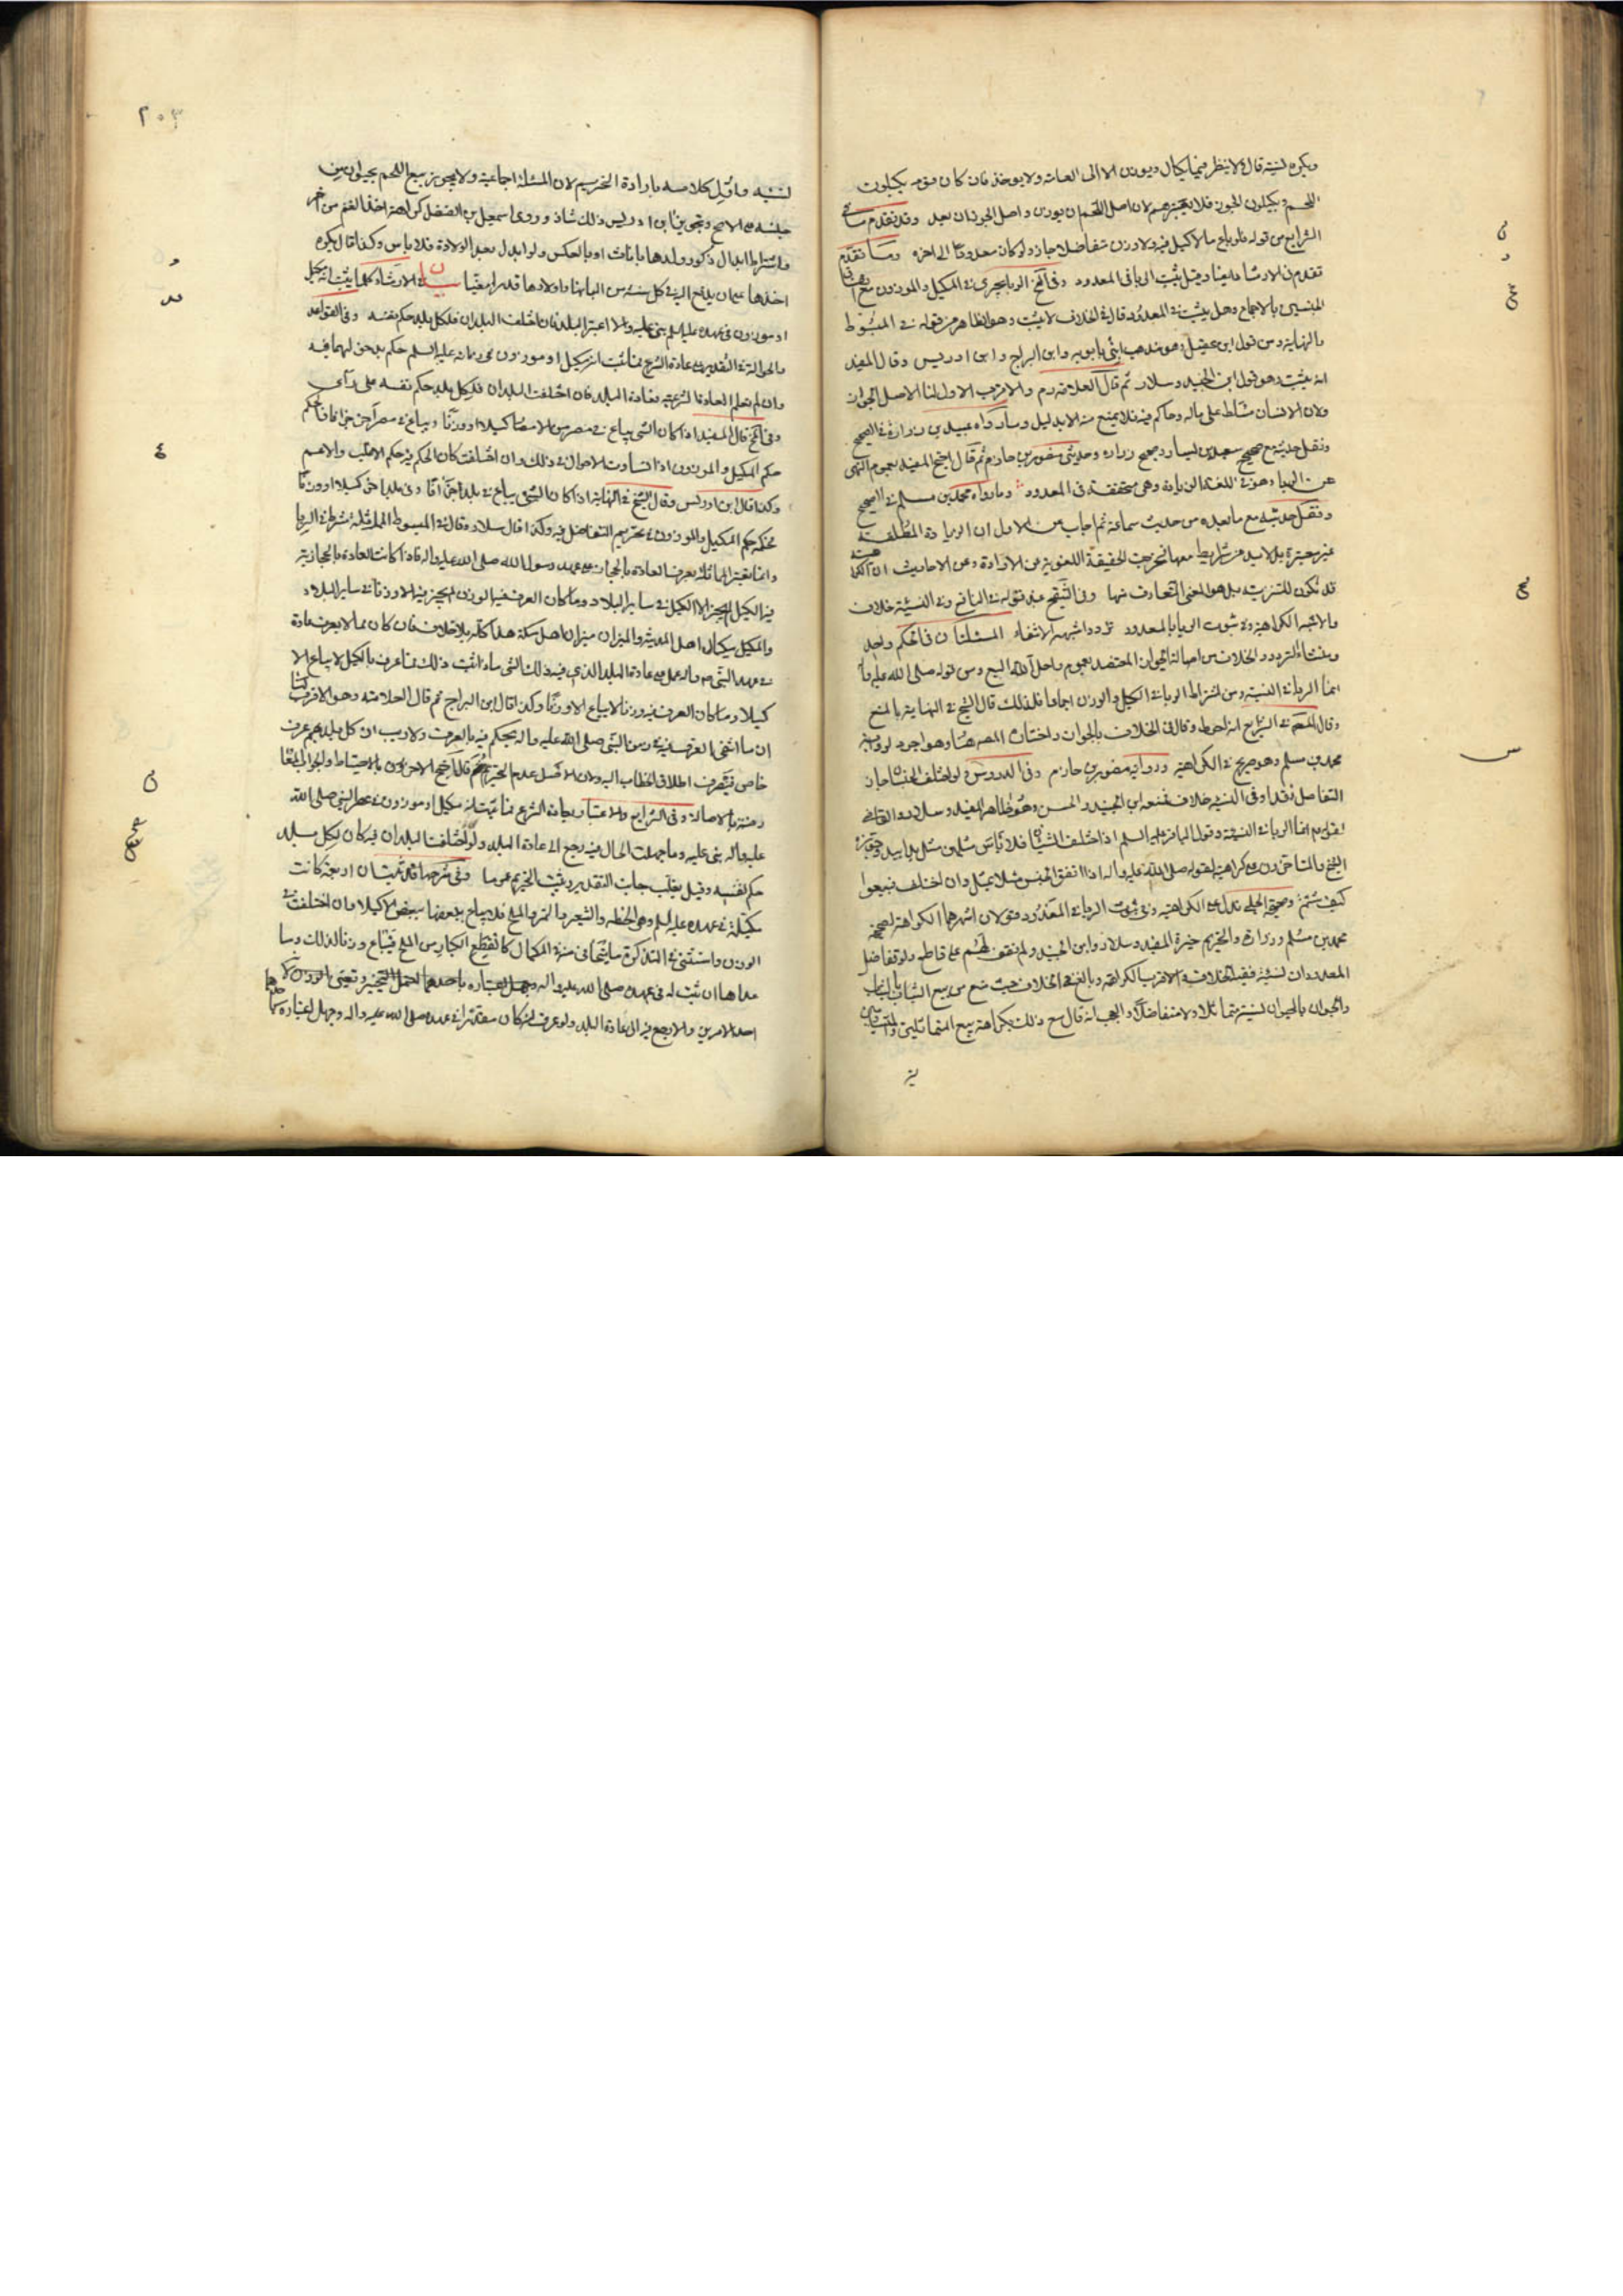 ويكره نسية قال ولا ينظر فيما يكال ويوزن الا الى العادة ولا يوخذ فان كان قوم يكيلون
اللحم ويكيلون الجوز فلا يعتبر بهم لان اصل اللحم ان يوزن واصل الجوز ان يعد وقد تقدم ما في
الشرايع من قوله فلو باع ما لا كيل فيه ولا وزن متفاضلا جاز ولو كان معدودا الى اخره وما تقدم
تقدم في الارشاد وقيل يثبت الربا في المعدود وفي لف الربا يجري في المكيل والموزون مع اتفاق
الجنسين بالاجماع وهل يثبت في المعدود قال في الخلاف لا يثبت وهو الظاهر من قوله في المبسوط
والنهاية ومن قول ابن عقيل وهو مذهب ابني بابويه وابن البراج وابن ادريس وقال المفيد
انه يثبت وهو قول ابن الجنيد وسلار ثم قال العلامة والاقرب الاول لنا الاصل الجواز
ولان الانسان مسلط على ماله وحاكم فيه فلا يمنع منه الا بدليل وما رواه عبيد بن زرارة في الصحيح
ونقل حديثه مع صحيح سعيد بن يسار وصحيح زرارة وحديثي منصور بن حازم ثم قال احتج المفيد بعموم النهي
عن الربا وهو في اللغة الزيادة وهي متحققة في المعدود وما رواه محمد بن مسلم في الصحيح
ونقل حديثه مع ما بعده من حديث سماعة ثم اجاب عن الاول ان الزيادة المطلقة
غير معتبرة بل لابد من شرايط معها تخرجت الحقيقة اللغوية عن الارادة وعن الاحاديث ان الكراهة
قد تكون للتنزيه بل هو المعنى المتعارف منها وفي التنقيح عند قوله في النافع وفي النسيئة خلاف
والاشبه الكراهية وفي ثبوت الربا بالمعدود تردد اشبهه الانتفاء المسئلتان في الحكم واحد
ومنشاء التردد والخلاف من اصالة الجواز المعتضد بعموم واحل الله البيع ومن قوله صلى الله عليه وآله
انما الربا في النسية ومن اشتراط الربا في الكيل والوزن اجماعا فلذلك قال الشيخ في النهاية بالمنع
وقال المحقق في الشرايع انه احوط وقال في الخلاف بالجواز واختاره المصنف هنا وهو اجود لرواية
محمد بن مسلم وهو صريح في الكراهية ورواية منصور بن حازم وفي الدروس ولو اختلف الجنسان جاز
التفاضل نقدا وفي النسية خلاف فمنعه ابن الجنيد والحسن وهو ظاهر المفيد وسلار والقاضي
لقولهم انما الربا في النسية وقول الباقر عليه السلم اذا اختلف الشيئان فلا باس مثلين بمثل يدا بيد وجوزه
الشيخ والمتاخرون على كراهية لقوله صلى الله عليه وآله اذا اتفق الجنس مثلا بمثل وان اختلف فبيعوا
كيف شئتم وصحيحة الحلبي تدل على الكراهية وفي ثبوت الربا في المعدود قولان اشهرهما الكراهة لصحيحة
محمد بن مسلم وزرارة والتحريم خيرة المفيد وسلار وابن الجنيد ولم نقف لهم على قاطع ولو تفاضل
المعدودان نسية ففيه الخلاف والاقرب الكراهة وبالغ في الخلاف حيث منع من بيع الثياب بالثياب
والحيوان بالحيوان نسية متماثلا ولا متفاضلا والعجب انه قال مع ذلك بكراهة بيع المتماثلين والمتفاضلين
٢٠٣
نسية واول كلامه بارادة التحريم لان المسئلة اجماعية ولا يجوز بيع اللحم بحيوان من
جنسه على الاصح وتجويز ابن ادريس ذلك شاذ وروى اسمعيل بن الفضل كراهة اخذ الغنم من اخر
واشتراط ابدال ذكور ولدها باناث او بالعكس ولو ابدل بعد الولادة فلا باس وكذا قال يكره
اخذها على ان يدفع اليه في كل سنة من البانها واولادها قدرا معينا في الارشاد كلما يثبت انه مكيل
او موزون في عهده عليه السلم بنى عليه والا اعتبر البلد فان اختلفت البلدان فلكل بلد حكم نفسه وفي القواعد
والحوالة في التقدير على عادة الشرع فما ثبت انه مكيل او موزون في زمانه عليه السلم حكم بدخوله فيه
وان لم تعلم العادة الشرعية فعادة البلد فان اختلفت البلدان فلكل بلد حكم نفسه على رأي
وفي لف قال المفيد اذا كان الشيء يباع في مصر من الامصار كيلا او وزنا ويباع في مصر آخر جزافا فحكمه
حكم المكيل والموزون اذا تساوت الاحوال في ذلك وان اختلفت كان الحكم فيه حكم الاغلب والاعم
وكذا قال ابن ادريس وقال الشيخ في النهاية اذا كان الشيء يباع في بلد جزافا وفي بلد آخر كيلا او وزنا
فحكمه حكم المكيل والموزون في تحريم التفاضل فيه وكذا قال سلار وقال في المبسوط المماثلة شرط في الربا
وانما يعتبر المماثلة بعرف العادة بالحجاز على عهد رسول الله صلى الله عليه وآله فاذا كانت العادة بالحجاز يته
فيه الكيل لم يجز الا الكيل في ساير البلاد وما كان العرف فيه الوزن لم يجز فيه الا وزنا في ساير البلاد
والمكيل مكيال اهل المدينة والميزان ميزان اهل مكة هذا كله بلا خلاف فان كان مما لا يعرف عادة
في عهد النبي ص وآله حمل على عادة البلد الذي فيه ذلك الشيء فاذا ثبت ذلك فما عرف بالكيل لا يباع الا
كيلا وما كان العرف فيه وزنا لا يباع الا وزنا وكذا قال ابن البراج ثم قال العلامة وهو الاقرب لنا
ان ما انتفى العرف فيه في زمن النبي صلى الله عليه وآله يحكم فيه بالعرف ولا ريب ان كل بلد لهم عرف
خاص فيصرف اطلاق الخطاب اليه ولان الاصل عدم التحريم احتج الاخرون بالاحتياط والجواب المعارضة
بالاصالة وفي الشرايع والاعتبار بعادة الشرع فما ثبت انه مكيل او موزون في عصر النبي صلى الله
عليه وآله بنى عليه وما جهلت الحال فيه رجع الى عادة البلد ولو اختلفت البلدان فيه كان لكل بلد
حكم نفسه وقيل يغلب جانب التقدير ويثبت التحريم عموما وفي شرحها قد ثبت ان اربعة كانت
مكيلة في عهده عليه السلم وهي الحنطة والشعير والتمر والملح فلا يباع بعضها ببعض الا كيلا وان اختلفت في
الوزن واستثنى في التذكرة ما يتجافى منه في المكيال كالقطع الكبار من الملح فيباع وزنا لذلك وما
عداها ان ثبت له في عهده صلى الله عليه وآله وجهل اعتباره باحدهما احتمل التخيير وتعين الوزن
احد الامرين والا رجع فيه الى عادة البلد ولو عرف انه كان مقدرا في عهده صلى الله عليه وآله وجهل اعتباره